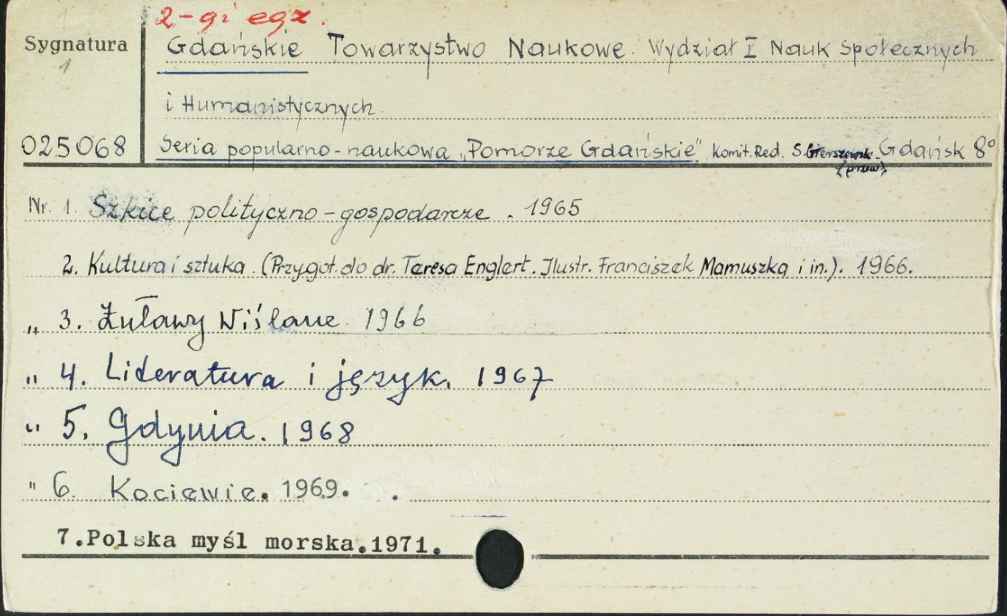 2-gi egz.
Sygnatura
1
Gdańskie Towarzystwo Naukowe. Wydział I Nauk Społecznych
i Humanistycznych
025068
Seria popularno-naukowa „Pomorze Gdańskie" Komit. Red. S. Gdańsk 8°
(przew.)
Nr. 1. Szkice polityczno-gospodarcze. 1965
2. Kultura i sztuka. (Przygot. do dr. Teresa Englert. Ilustr. Franciszek Mamuszka i in.). 1966.
„ 3. Żuławy Wiślane. 1966
„ 4. Literatura i język. 1967
„ 5. Gdynia. 1968
" 6. Kociewie. 1969.
7.Polska myśl morska.1971.